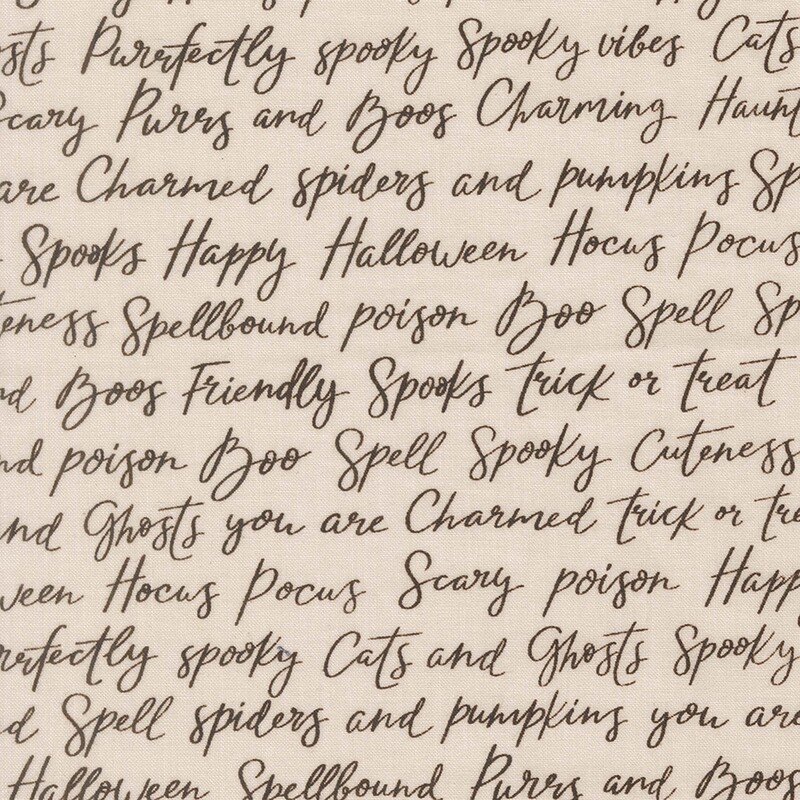 sts Purrfectly spooky Spooky vibes Cats
Scary Purrs and Boos Charming Haunt
are Charmed spiders and pumpkins Sp
Spooks Happy Halloween Hocus Pocus
teness Spellbound poison Boo Spell Sp
nd Boos Friendly Spooks trick or treat
nd poison Boo Spell Spooky Cuteness
and Ghosts you are Charmed trick or tre
ween Hocus Pocus Scary poison Happ
rrfectly spooky Cats and Ghosts Spooky
d Spell spiders and pumpkins you are
Halloween Spellbound Purrs and Boos